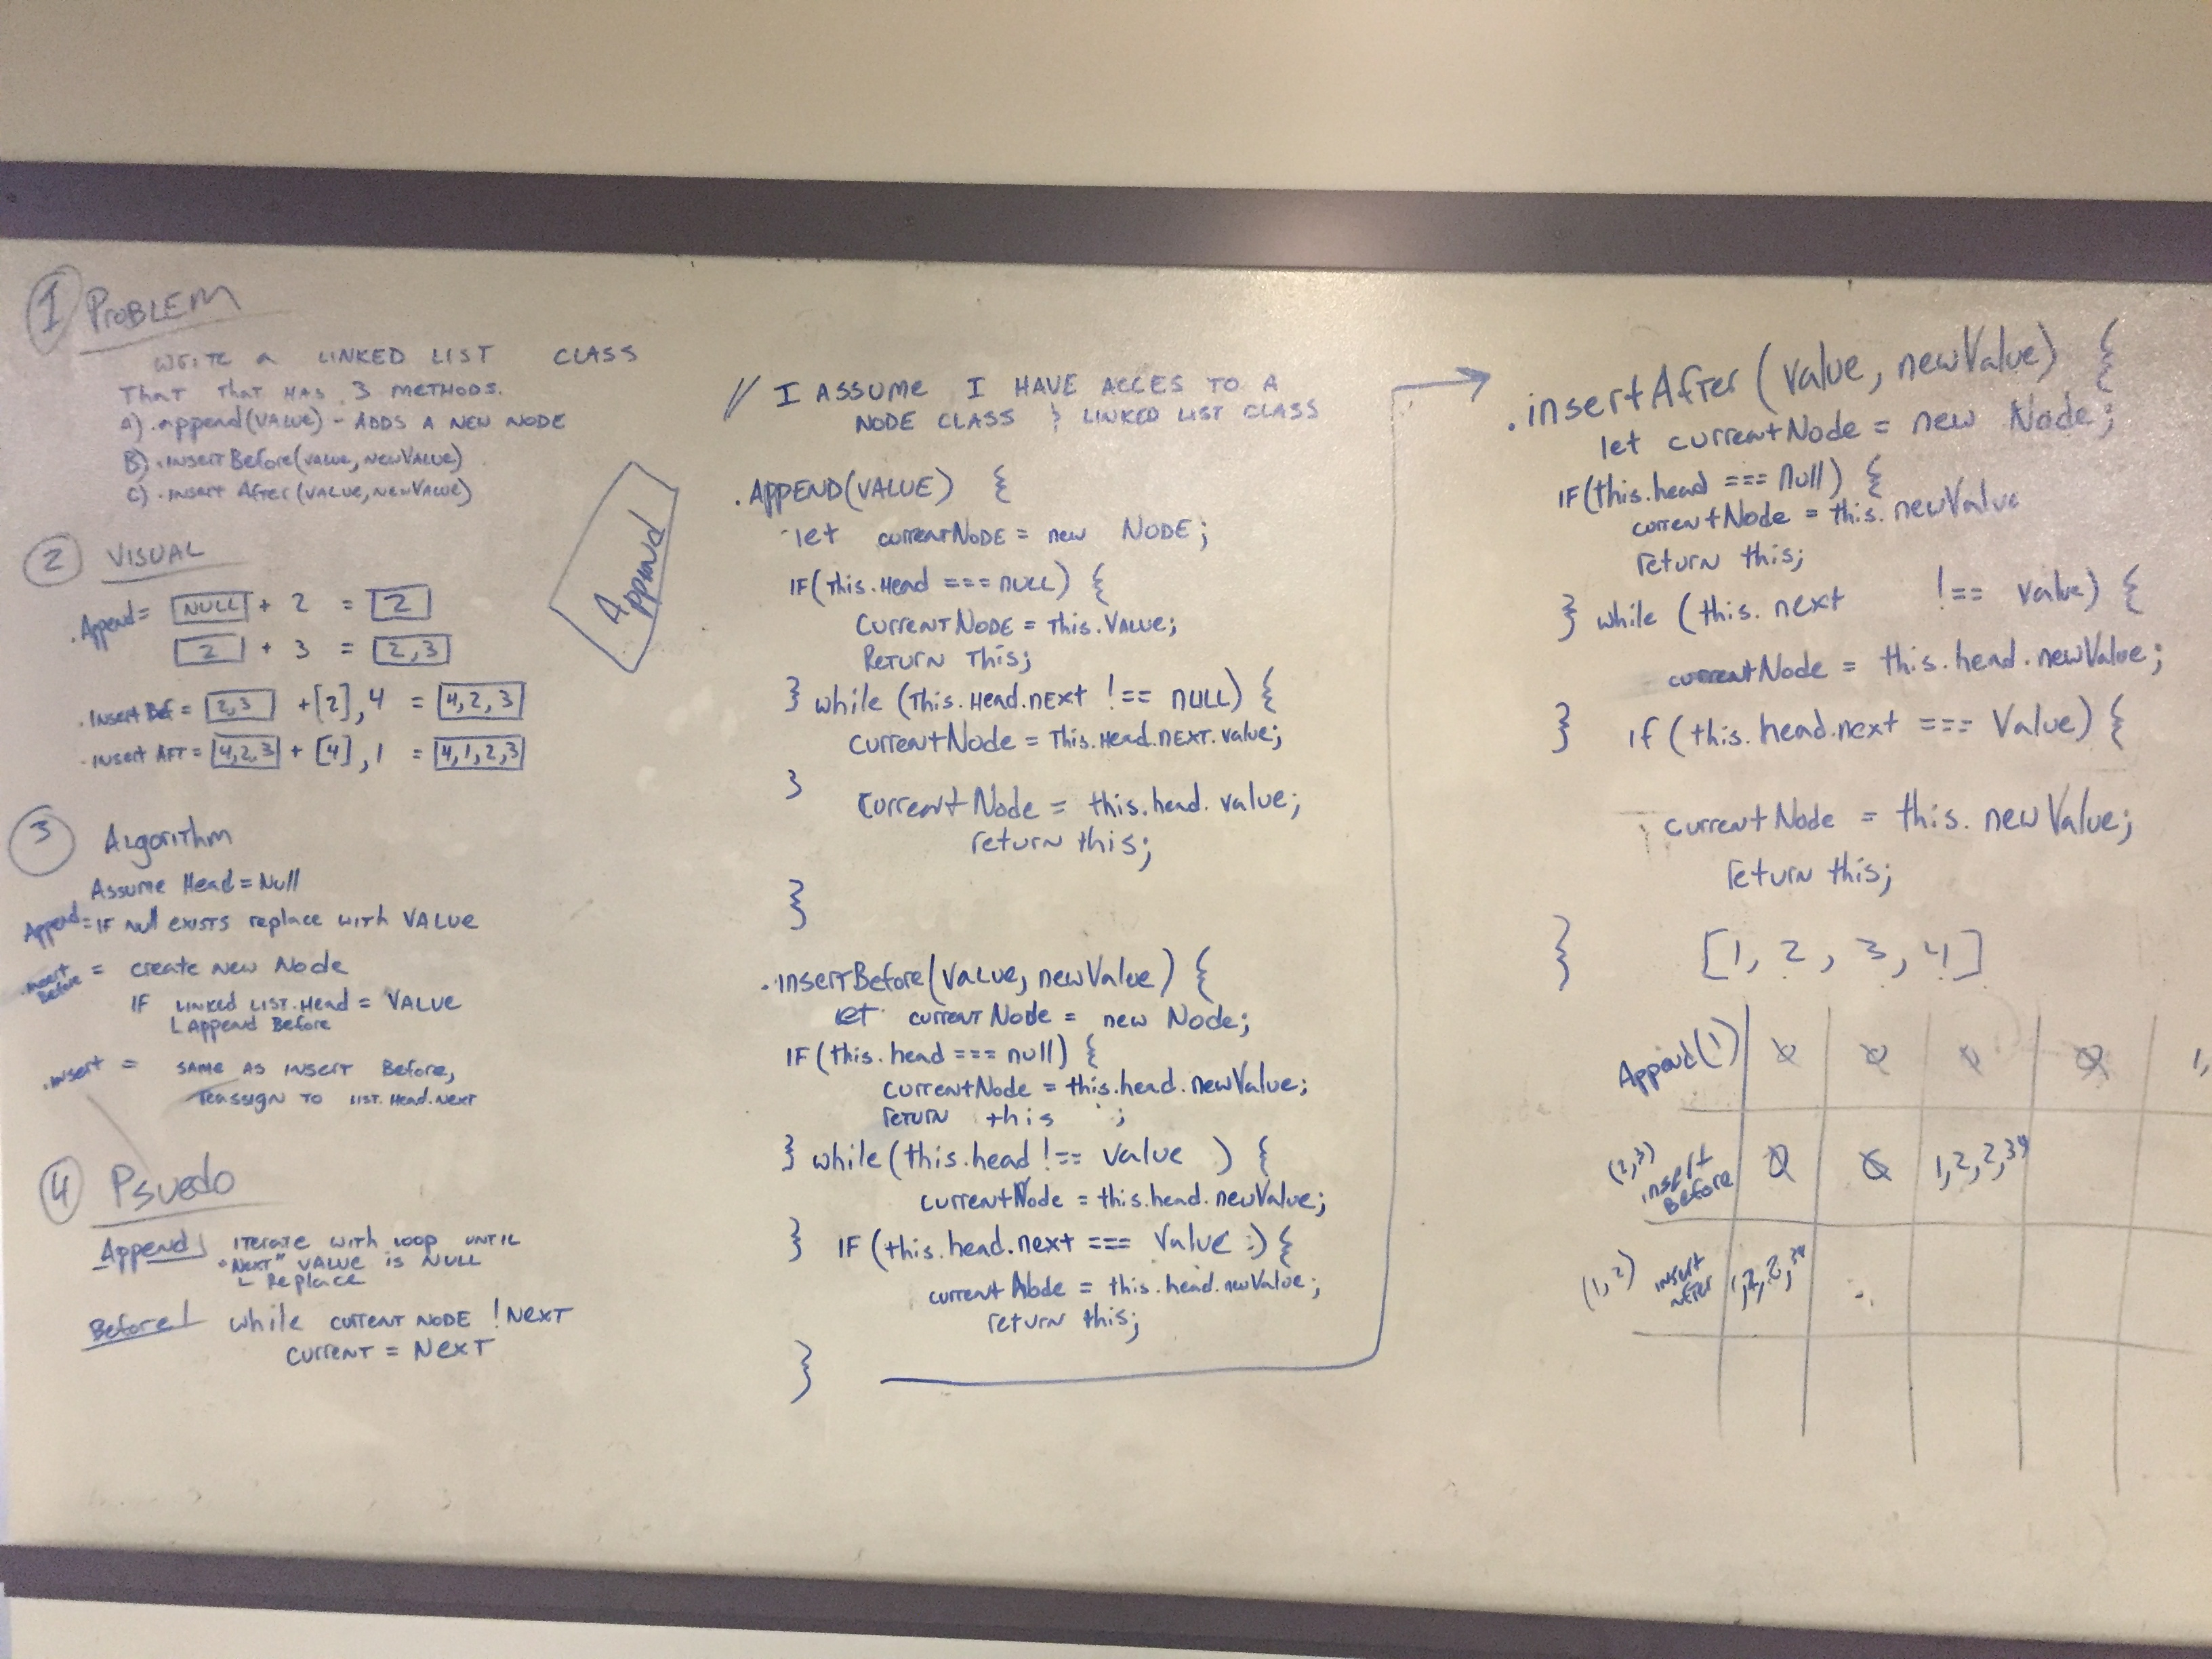 1 PROBLEM
WRITE A LINKED LIST CLASS
THAT THAT HAS 3 METHODS.
A) .append(VALUE) - ADDS A NEW NODE
B) .INSERT Before(VALUE, NEWVALUE)
C) .INSERT AFTER(VALUE, NEWVALUE)
2 VISUAL
.Append = NULL + 2 = 2
2 + 3 = 2,3
.INSERT Bef = 2,3 + [2], 4 = 4,2,3
.INSERT AFT = 4,2,3 + [4], 1 = 4,1,2,3
3 Algorithm
Assume Head = Null
Append = IF Null EXISTS replace with VALUE
.insert Before = create new Node
IF LINKED LIST.Head = VALUE
L Append Before
.insert = SAME AS INSERT Before,
reassign TO LIST.Head.Next
4 Psuedo
Append ITERATE with LOOP UNTIL
"Next" VALUE is NULL
L Replace
Before while CURRENT NODE ! NEXT
CURRENT = NEXT
Append
// I ASSUME I HAVE ACCES TO A
NODE CLASS & LINKED LIST CLASS
.APPEND(VALUE) {
let CURRENTNODE = new NODE;
IF(THIS.Head === NULL) {
CURRENTNODE = THIS.VALUE;
RETURN THIS;
} while (THIS.Head.NEXT !== NULL) {
CURRENTNode = THIS.Head.NEXT.value;
}
CurrentNode = this.head.value;
return this;
}
.insertBefore(Value, newValue) {
let currentNode = new Node;
IF(this.head === null) {
currentNode = this.head.newValue;
return this ;
} while(this.head !== value ) {
currentNode = this.head.newValue;
} IF(this.head.next === Value ) {
currentNode = this.head.newValue;
return this;
}
.insertAfter(value, newValue) {
let currentNode = new Node;
IF(this.head === Null) {
currentNode = this.newValue
return this;
} while (this.next !== value) {
currentNode = this.head.newValue;
} if(this.head.next === Value) {
currentNode = this.newValue;
return this;
}
[1, 2, 3, 4]
Append(1) 1,
(2,3) insert Before 1,2,2,34
(1,2) insert AFTER